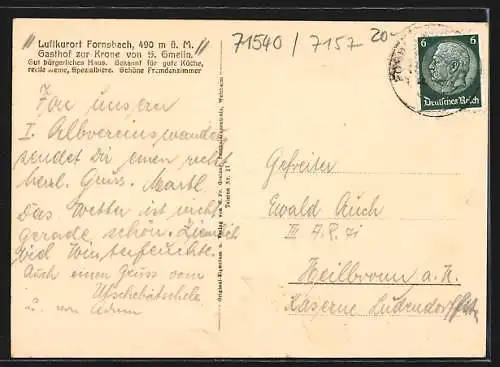 Luftkurort Fornsbach, 490 m ü. M.
Gasthof zur Krone von S. Gmelin.
Gut bürgerliches Haus. Bekannt für gute Küche,
reelle Weine, Spezialbiere. Schöne Fremdenzimmer
71540 / 7157 20.-
6 6
Deutsches Reich
Von unsern
I. Albvereinswanderung
sendet Dir einen recht
herzl. Gruss.
Das Wetter ist nicht
gerade schön. Ziemlich
viel Winterfeuchte.
Auch einen Gruss vom
u. von
Original-Eigentum u. Verlag von
Telefon Nr. 21
Gefreiter
Ewald Auch
III
Heilbronn a. N.
Kaserne Ludendorff